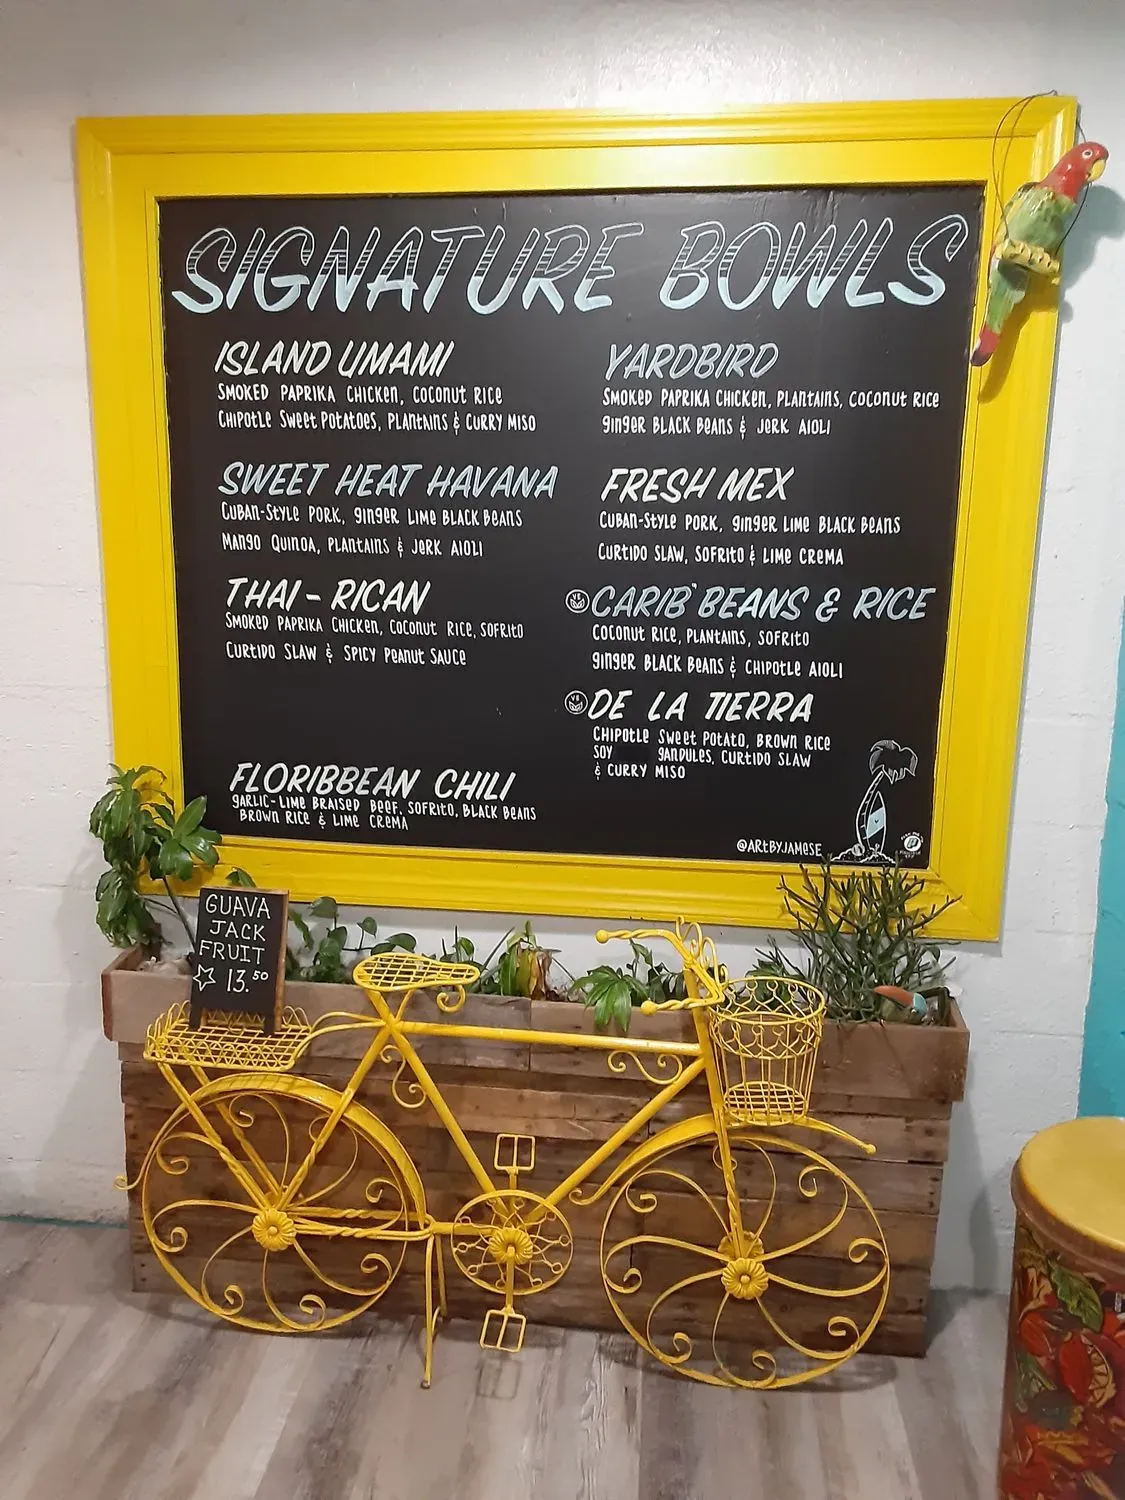 SIGNATURE BOWLS
ISLAND UMAMI
SMOKED PAPRIKA CHICKEN, COCONUT RICE
CHIPOTLE SWEET POTATOES, PLANTAINS & CURRY MISO
SWEET HEAT HAVANA
CUBAN-STYLE PORK, GINGER LIME BLACK BEANS
MANGO QUINOA, PLANTAINS & JERK AIOLI
THAI-RICAN
SMOKED PAPRIKA CHICKEN, COCONUT RICE, SOFRITO
CURTIDO SLAW & SPICY PEANUT SAUCE
FLORIBBEAN CHILI
GARLIC-LIME BRAISED BEEF, SOFRITO, BLACK BEANS
BROWN RICE & LIME CREMA
YARDBIRD
SMOKED PAPRIKA CHICKEN, PLANTAINS, COCONUT RICE
GINGER BLACK BEANS & JERK AIOLI
FRESH MEX
CUBAN-STYLE PORK, GINGER LIME BLACK BEANS
CURTIDO SLAW, SOFRITO & LIME CREMA
CARIB"BEANS & RICE
COCONUT RICE, PLANTAINS, SOFRITO
GINGER BLACK BEANS & CHIPOTLE AIOLI
DE LA TIERRA
CHIPOTLE SWEET POTATO, BROWN RICE
SOY GANDULES, CURTIDO SLAW
& CURRY MISO
@ARTBYJAMESE
GUAVA
JACK
FRUIT
13.50